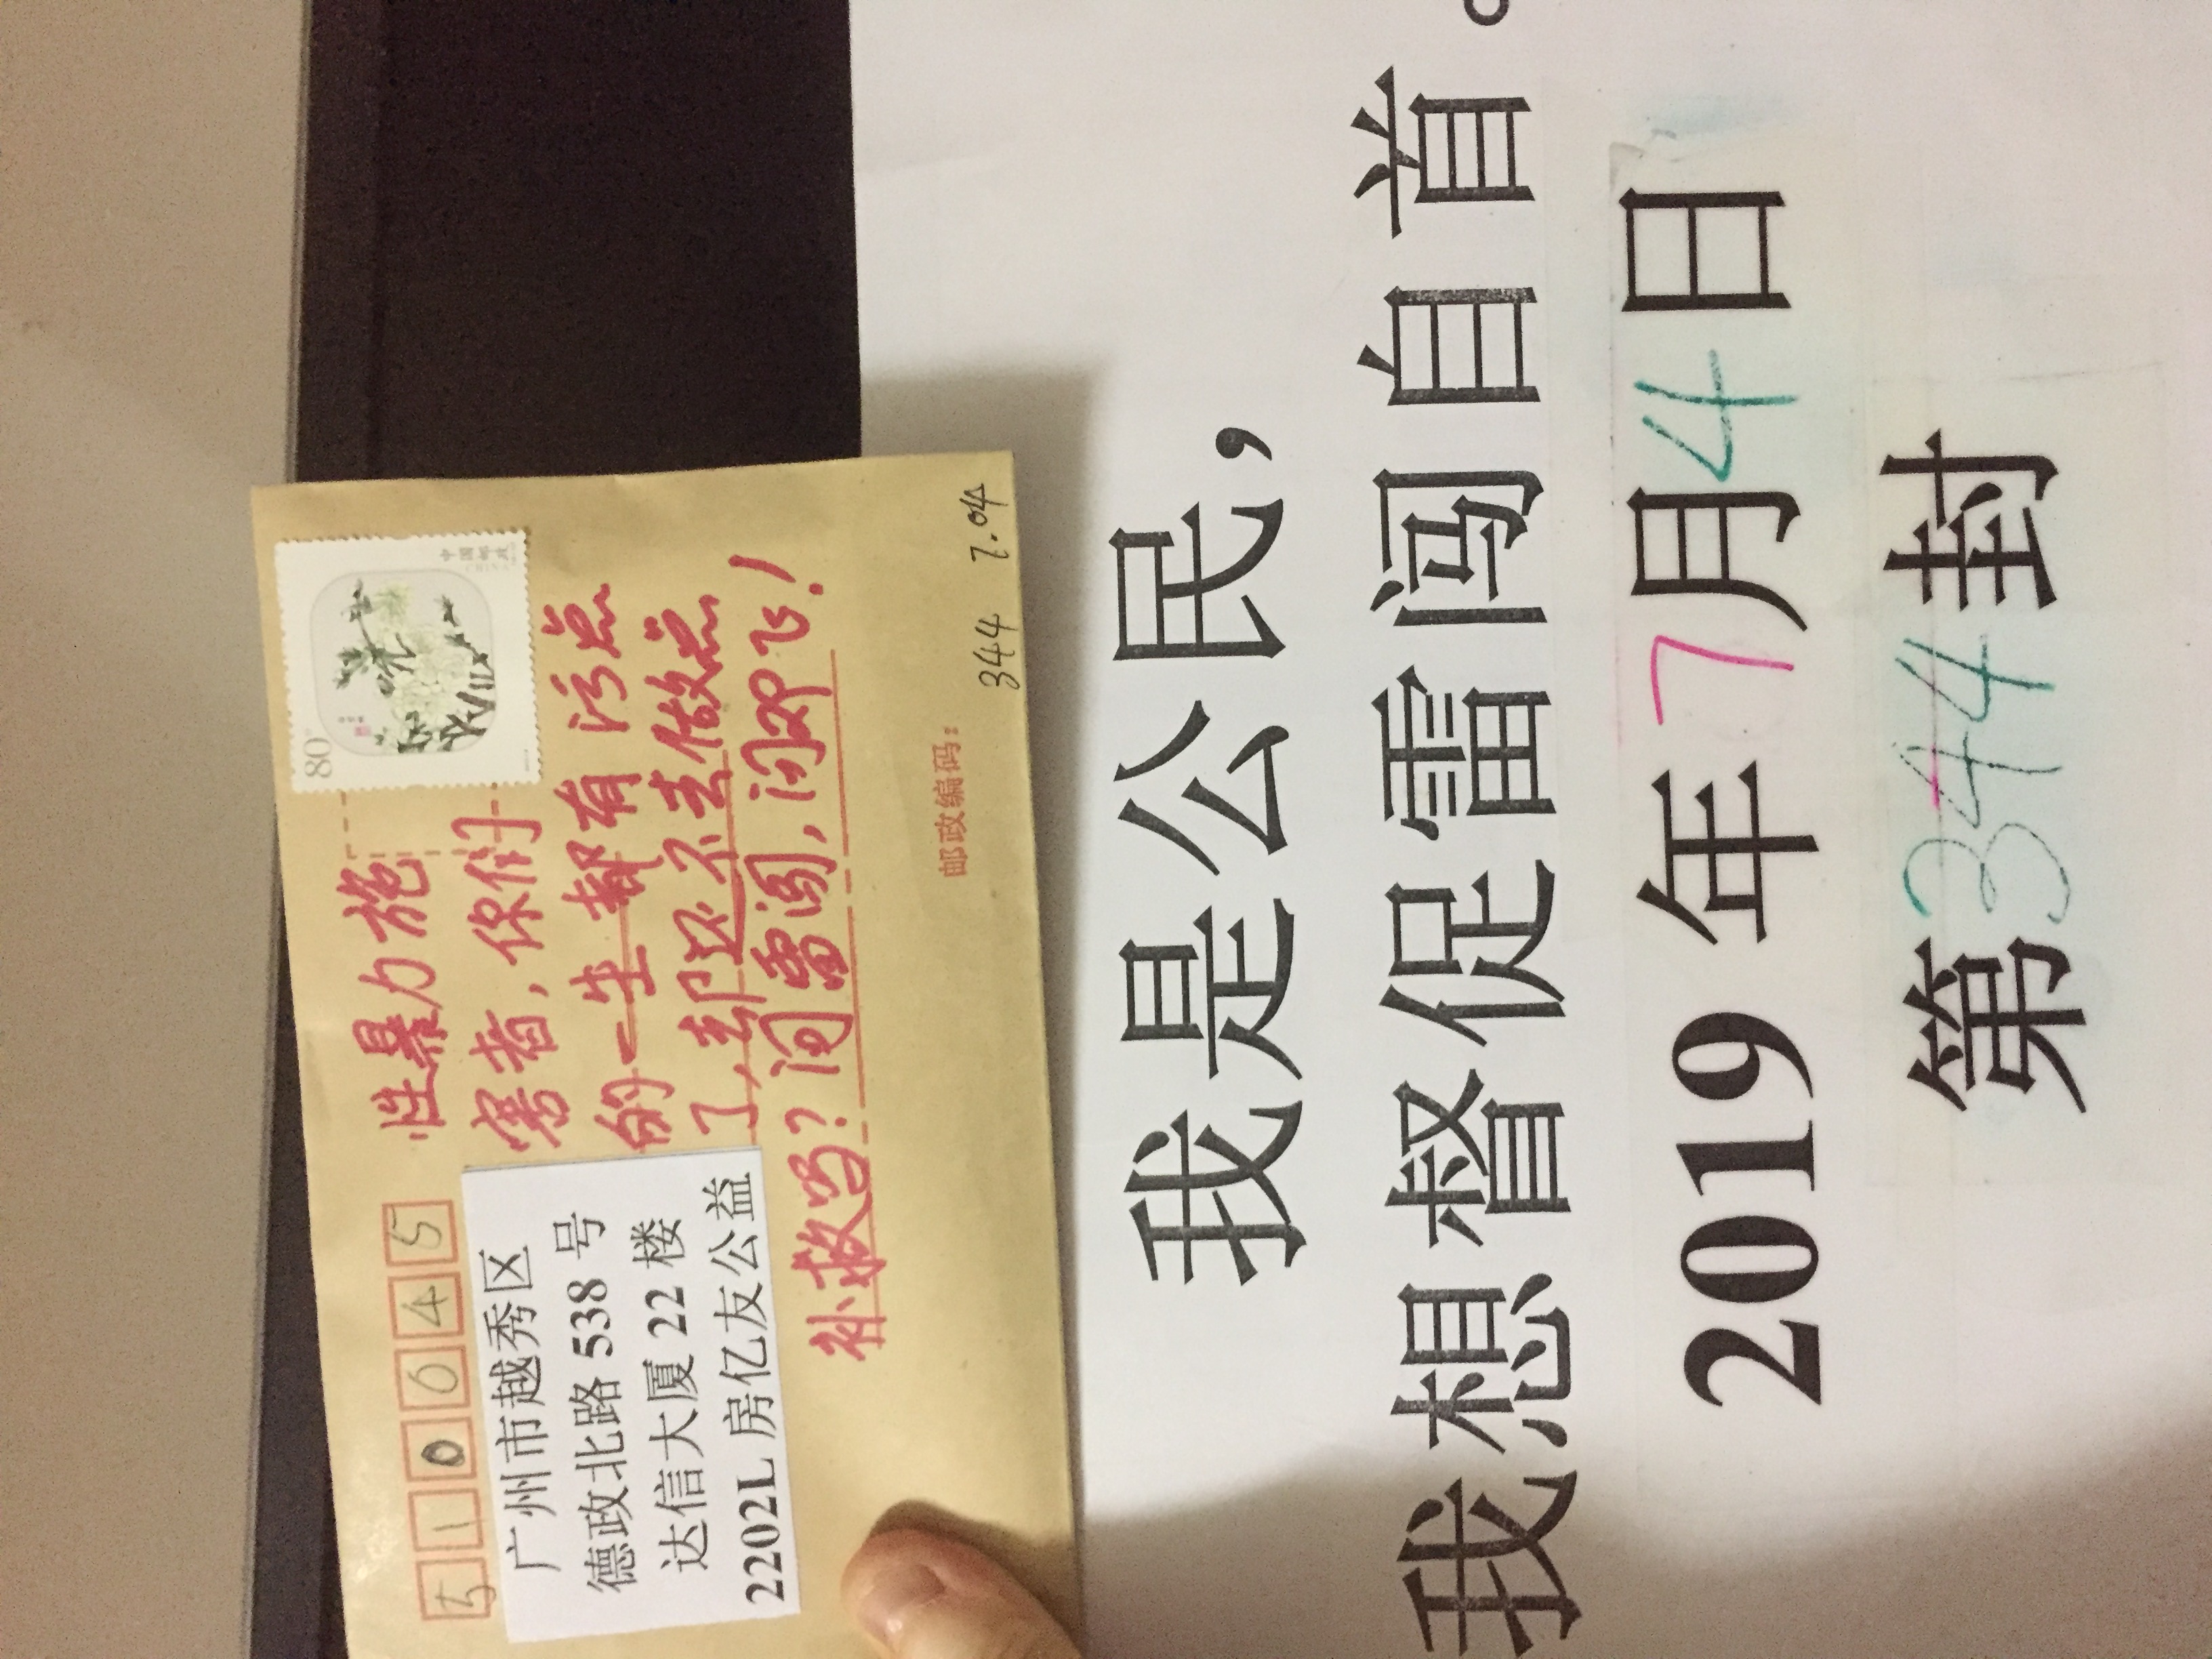 510045
80
中国邮政
广州市越秀区
德政北路 538 号
达信大厦 22 楼
2202L 房亿友公益
性暴力施
害者，你们
的一生都有污点
了，却还不去做点
补救吗？问雷闯，问邓飞！
邮政编码：
344 7.04
我是公民，
我想督促雷闯自首。
2019 年 7 月 4 日
第 344 封